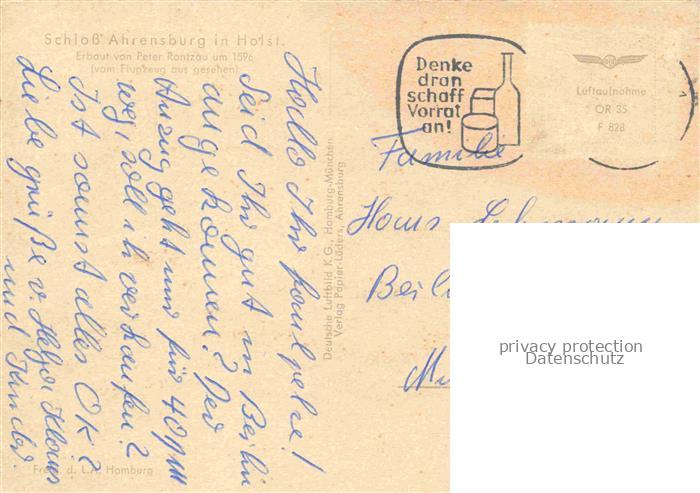 Schloß Ahrensburg in Holst.
Erbaut von Peter Rantzau um 1596
(vom Flugzeug aus gesehen)
Hallo Ihr
Seid Ihr gut in Berlin
angekommen? Der
Anzug geht nur für 40 DM
weg, soll ich verkaufen?
Ist sonst alles OK?
Liebe Grüße v. Helga Klaus
und
Freig. d. L.A. Hamburg
Deutsche Luftbild K.G., Hamburg-München
Verlag Papier-Lüders, Ahrensburg
Denke
dran
schaff
Vorrat
an!
Luftaufnahme
OR 35
F 828
Familie
Hans
privacy protection
Datenschutz